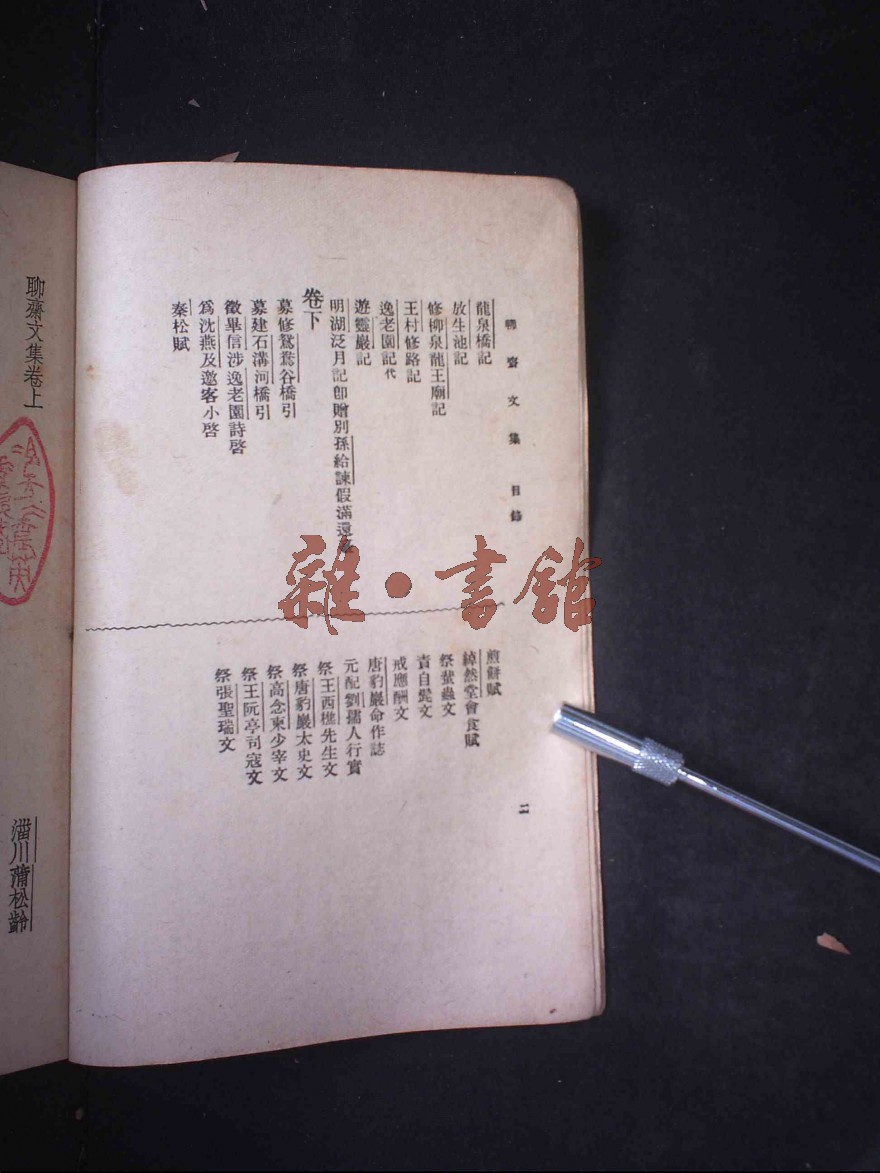 聊齋文集 目錄
龍泉橋記
放生池記
修柳泉龍王廟記
王村修路記
逸老園記代
遊靈巖記
明湖泛月記卽贈別孫給諫假滿還
卷下
募修鴛鴦谷橋引
募建石溝河橋引
徵畢信涉逸老園詩啓
爲沈燕及邀客小啓
秦松賦
煎餅賦
綽然堂會食賦
祭蜚蟲文
責白髭文
戒應酬文
唐豹巖命作誌
元配劉孺人行實
祭王西樵先生文
祭唐豹巖太史文
祭高念東少宰文
祭王阮亭司寇文
祭張聖瑞文
二
雜·書館
聊齋文集卷上
淄川蒲松齡